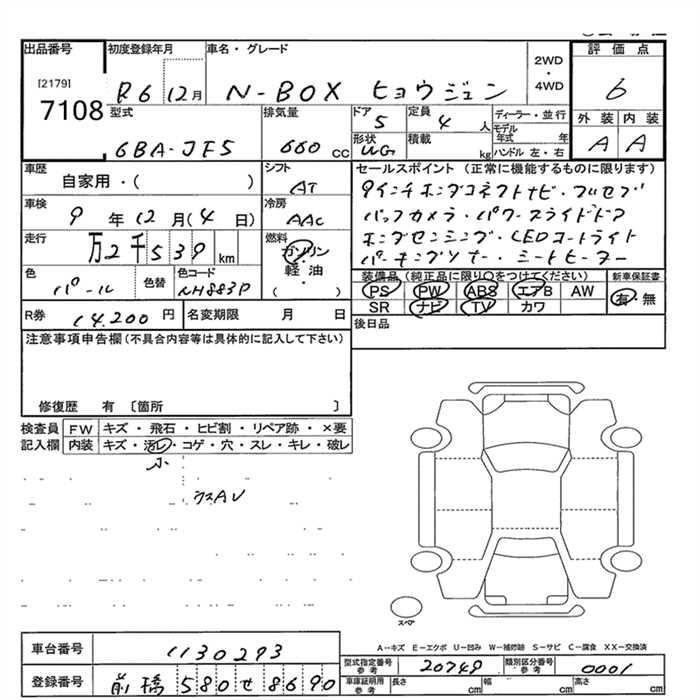 出品番号 初度登録年月 車名・グレード 評価点
[2179]
7108
R6 12月 N-BOX ヒョウジュン 2WD・4WD 6
型式 排気量 ドア 定員 ディーラー・並行 外装 内装
6BA-JF5 660 CC 5 4 人 モデル年式 年 A A
形状 積載 kg ハンドル 左・右
車歴 シフト セールスポイント (正常に機能するものに限ります)
自家用・( ) AT 9インチホンダコネクトナビ・フルセグ
車検 冷房 バックカメラ・パワースライドドア
9年12月(4日) AAC ホンダセンシング・LEDコートライト
走行 燃料 パーキングソナー・シートヒーター
万2千539km ガソリン・軽油・( )
色 色替 色コード 装備品 (純正品に限り○をつけてください) 新車保証書
パール NH883P PS PW ABS エアB AW 有・無
SR ナビ TV カワ
R券 14.200円 名変期限 月 日 後日品
注意事項申告欄(不具合内容等は具体的に記入して下さい)
修復歴 有 〔箇所 〕
検査員 FW キズ・飛石・ヒビ割・リペア跡・×要
記入欄 内装 キズ・汚レ・コゲ・穴・スレ・キレ・破レ
小
スペア
A-キズ E-エクボ U-凹み W-補修跡 S-サビ C-腐食 XX-交換済
車台番号 1130293
型式指定番号 参考 20749 類別区分番号 参考 0001
登録番号 前橋 580 せ 8690
車庫証明用 参考 長さ cm 幅 cm 高さ cm